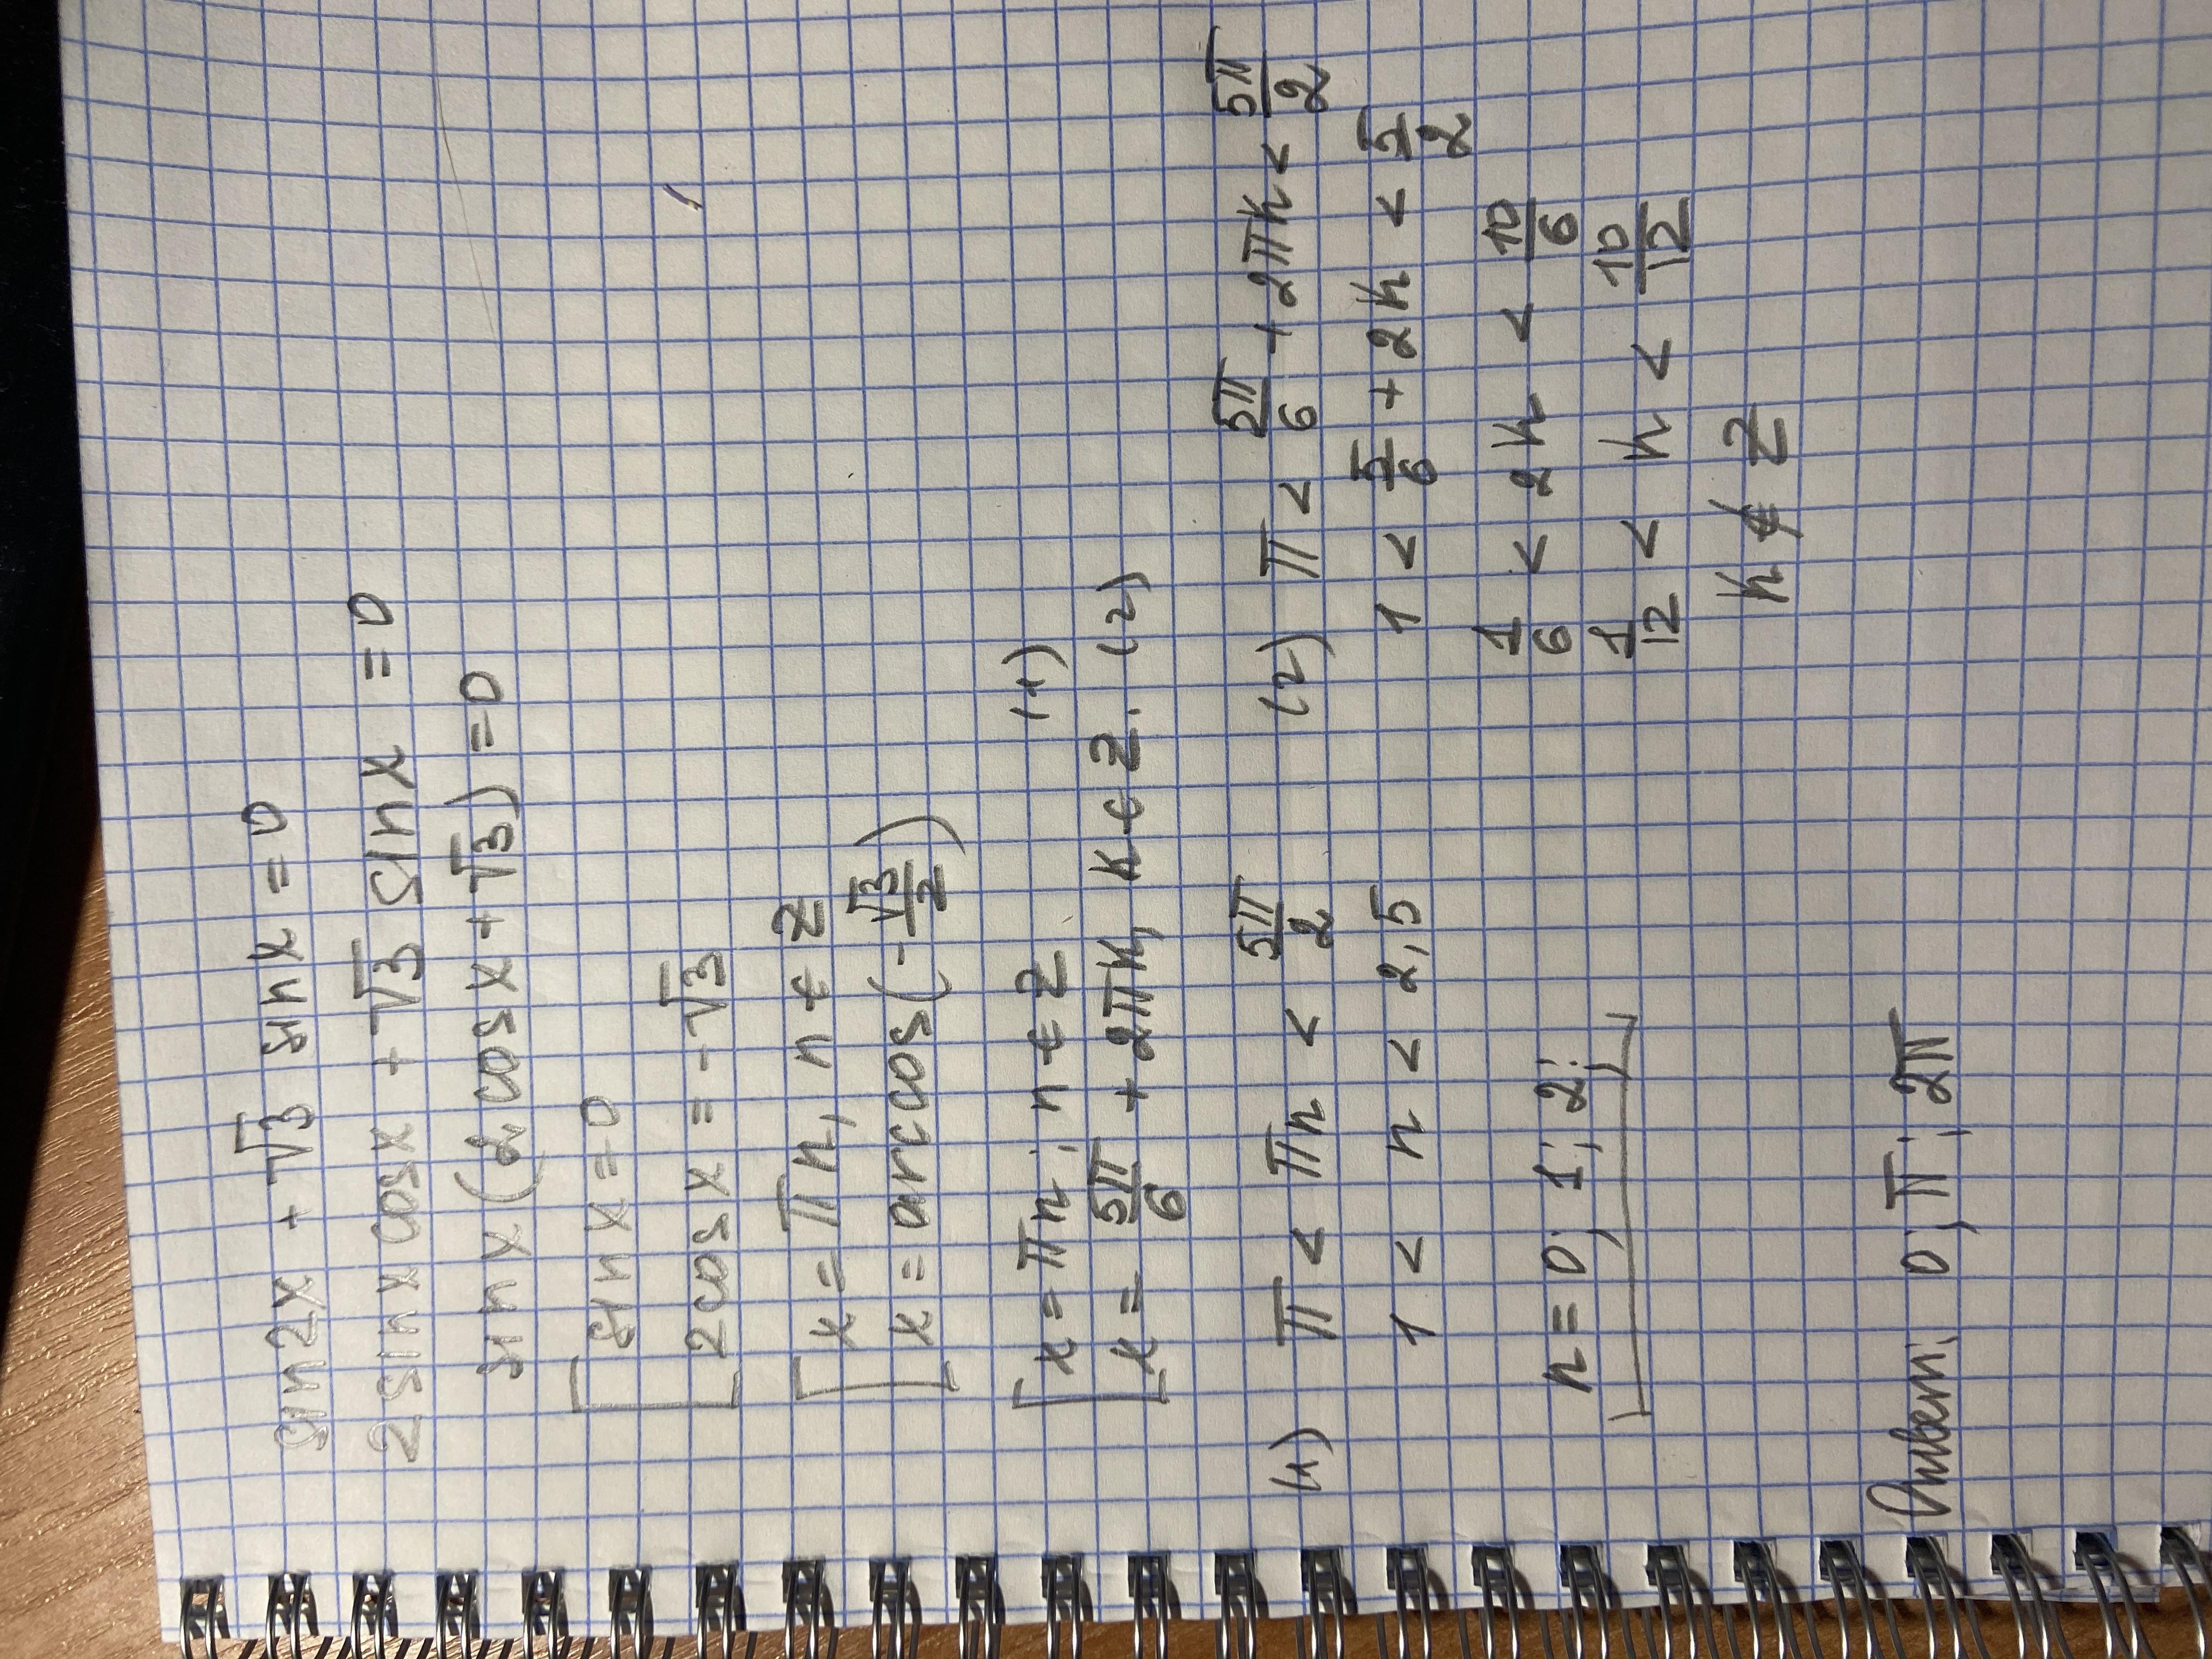 sin2x + √3 sinx = 0
2sinx cosx + √3 sinx = 0
sinx(2cosx + √3) = 0
[ sinx = 0
2cosx = -√3
[ x = πn, n ∈ Z
x = arccos(-√3/2)
[ x = πn; n ∈ Z (1)
x = 5π/6 + 2πk, k ∈ Z. (2)
(1) π < πn < 5π/2
1 < n < 2,5
n = 0; 1; 2;
(2) π < 5π/6 + 2πk < 5π/2
1 < 5/6 + 2k < 5/2
1/6 < 2k < 10/6
1/12 < k < 10/12
k ∉ Z
Ответ: 0; π; 2π